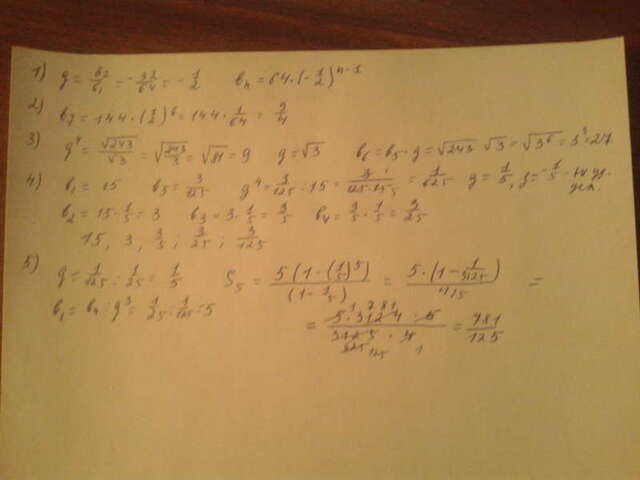 1) q = b₂/b₁ = -32/64 = -1/2    bₙ = 64·(-1/2)ⁿ⁻¹
2) b₇ = 144·(1/2)⁶ = 144·1/64 = 9/4
3) q⁴ = √243/√3 = √(243/3) = √81 = 9    q = √3    b₆ = b₅·q = √243 √3 = √3⁶ = 3³ = 27
4) b₁ = 15    b₅ = 3/125    q⁴ = 3/125 : 15 = 3·1/(125·15) = 1/625    q = 1/5, q = -1/5 -
b₂ = 15·1/5 = 3    b₃ = 3·1/5 = 3/5    b₄ = 3/5·1/5 = 3/25
15, 3, 3/5; 3/25; 3/125
5) q = 1/125 : 1/25 = 1/5    S₅ = 5(1-(1/5)⁵)/(1-1/5) = 5·(1-1/3125)/(4/5) =
b₁ = b₄ : q³ = 1/25 : 1/125 = 5    = 5·3124·5/(3125·4) = 781/125